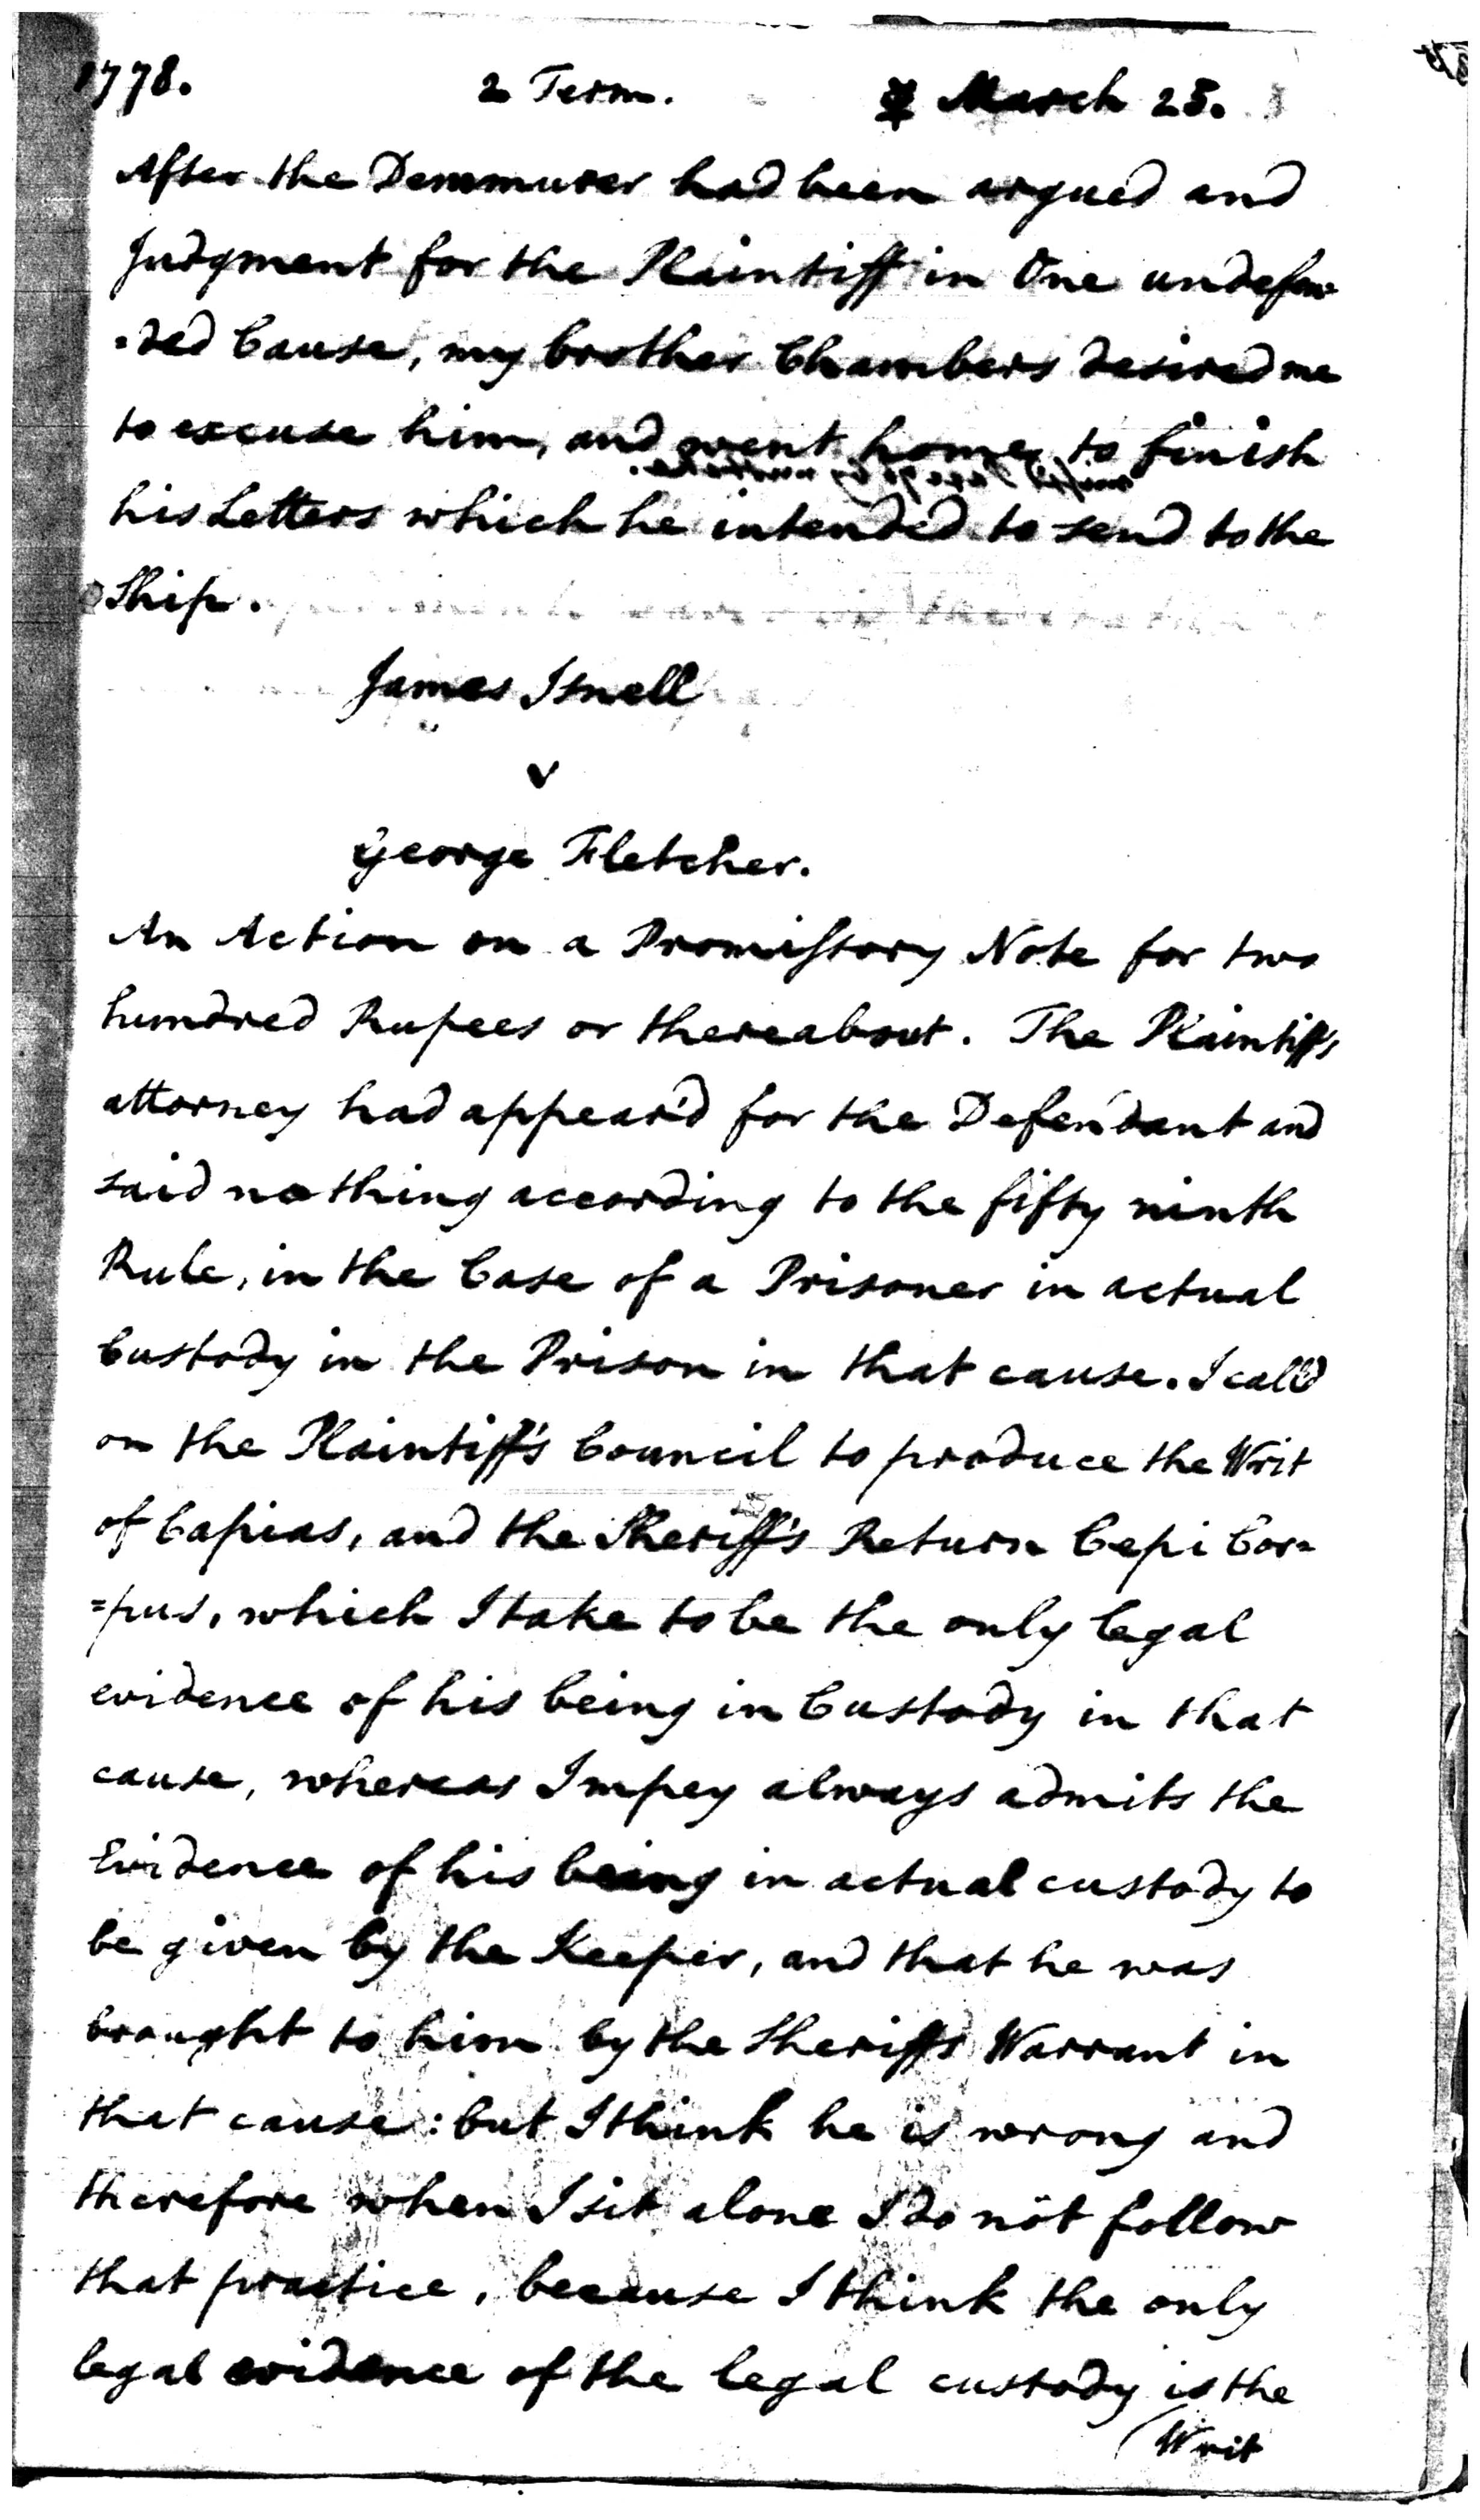 1778. 2 Term. ☿ March 25.
After the Demmurer had been argued and
Judgment for the Plaintiff in One undefen
=ded Cause, my brother Chambers desired me
to excuse him, and went home to finish
his Letters which he intended to send to the
Ship.
James Isnell
v
George Fletcher.
An Action on a Promissory Note for two
hundred Rupees or thereabout. The Plaintiffs
attorney had appear'd for the Defendant and
said nothing according to the fifty ninth
Rule, in the Case of a Prisoner in actual
Custody in the Prison in that cause. I call'd
on the Plaintiff's Council to produce the Writ
of Capias, and the Sheriff's Return Cepi Cor=
=pus, which I take to be the only legal
evidence of his being in Custody in that
cause, whereas Impey always admits the
Evidence of his being in actual custody to
be given by the Keeper, and that he was
brought to him by the Sheriffs Warrant in
that cause: but I think he is wrong and
therefore when I sit alone I do not follow
that practice, because I think the only
legal evidence of the legal custody is the
(Writ